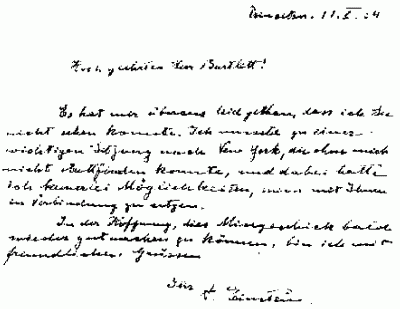 Princeton. 11. X. 34
Hochgeehrter Herr Bartlett!
Es hat mir überaus leid gethan, dass ich Sie
nicht sehen konnte. Ich musste zu einer
wichtigen Sitzung nach New York, die ohne mich
nicht stattfinden konnte, und dabei hatte
ich keinerlei Möglichkeiten, mich mit Ihnen
in Verbindung zu setzen.
In der Hoffnung, dies Missgeschick bald
wieder gutmachen zu können, bin ich mit
freundlichen Grüssen
Ihr A. Einstein